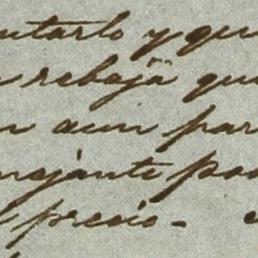 utarlo y que
rebaja que
n aun par
majante po
l precio -